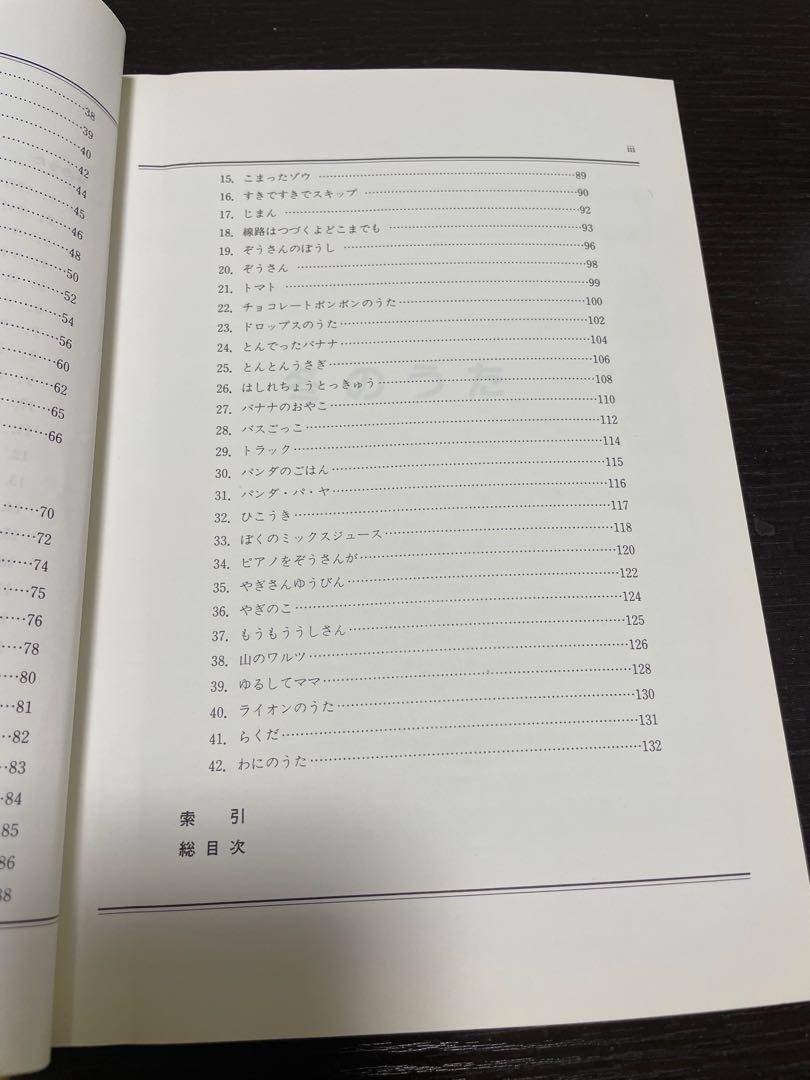 38
39
40
42
44
45
46
48
50
52
54
56
60
62
65
66
70
72
74
75
76
78
80
81
82
83
84
85
86
88
iii
15. こまったゾウ ……………………89
16. すきですきでスキップ ……………………90
17. じまん ……………………92
18. 線路はつづくよどこまでも ……………………93
19. ぞうさんのぼうし ……………………96
20. ぞうさん ……………………98
21. トマト ……………………99
22. チョコレートボンボンのうた……………………100
23. ドロップスのうた……………………102
24. とんでったバナナ……………………104
25. とんとんうさぎ……………………106
26. はしれちょうとっきゅう……………………108
27. バナナのおやこ……………………110
28. バスごっこ……………………112
29. トラック……………………114
30. パンダのごはん……………………115
31. パンダ・パ・ヤ……………………116
32. ひこうき……………………117
33. ぼくのミックスジュース……………………118
34. ピアノをぞうさんが……………………120
35. やぎさんゆうびん……………………122
36. やぎのこ……………………124
37. もうもううしさん……………………125
38. 山のワルツ……………………126
39. ゆるしてママ……………………128
40. ライオンのうた……………………130
41. らくだ……………………131
42. わにのうた……………………132
索 引
総目次